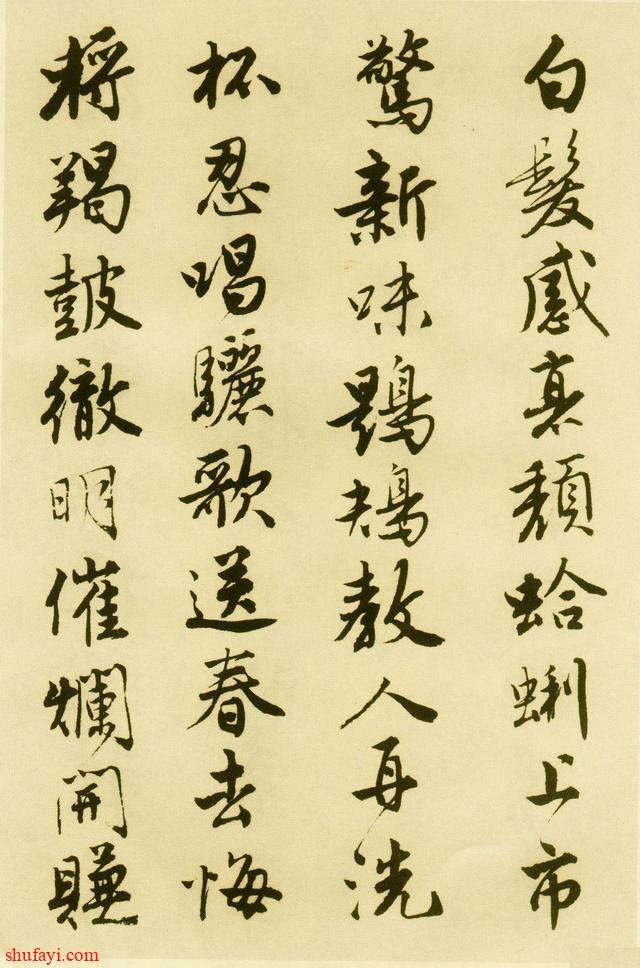 白髮感衰頹蛤蜊上市
驚新味鶗鴂教人再洗
杯忍唱驪歌送春去悔
將羯鼓徹明催爛開賺
shufayi.com